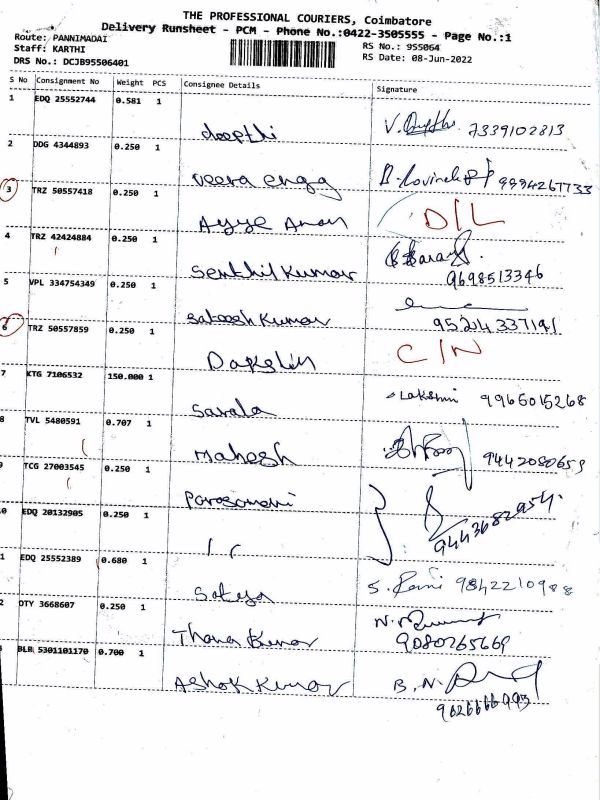 THE PROFESSIONAL COURIERS, Coimbatore
Delivery Runsheet - PCM - Phone No.:0422-3505555 - Page No.:1
Route: PANNIMADAI
Staff: KARTHI
DRS No.: DCJB95506401
RS No.: 955064
RS Date: 08-Jun-2022
S No Consignment No Weight PCS Consignee Details Signature
1 EDQ 25552744 0.581 1 deepthi 7339102813
2 DDG 4344893 0.250 1 veera engg 9994267733
3 TRZ 50557418 0.250 1 D/L
4 TRZ 42424884 0.250 1 Senthil Kumar 9698513346
5 VPL 334754349 0.250 1 Kumar
6 TRZ 50557859 0.250 1 C/N
7 KTG 7106532 150.000 1 Sarala Lakshmi 9965015268
8 TVL 5480591 0.707 1 Mahesh 9442080659
9 TCG 27003545 0.250 1
0 EDQ 20132905 0.250 1 9443682954
1 EDQ 25552389 0.680 1 Satya S. Rani 9842210988
2 OTY 3668607 0.250 1 Thana Kumar 9080765669
BLR 5301101170 0.700 1 Ashok Kumar B.N.